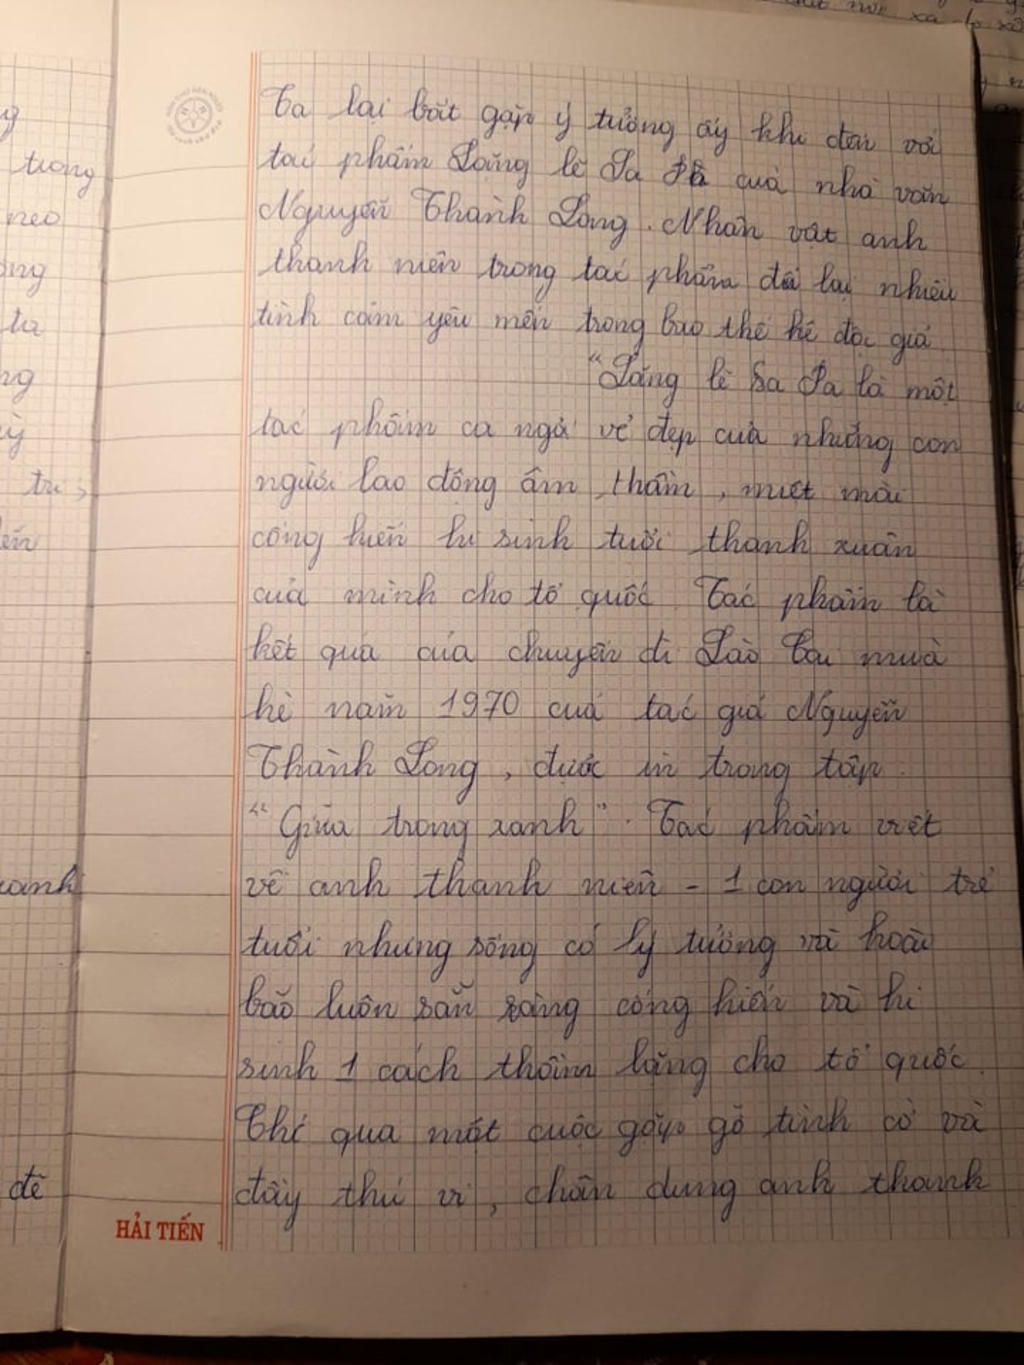 Ta lại bắt gặp ý tưởng ấy khi đến với
tác phẩm Lặng lẽ Sa Pa của nhà văn
Nguyễn Thành Long. Nhân vật anh
thanh niên trong tác phẩm để lại nhiều
tình cảm yêu mến trong bao thế hệ độc giả.
"Lặng lẽ Sa Pa là một
tác phẩm ca ngợi vẻ đẹp của những con
người lao động âm thầm, miệt mài
cống hiến hi sinh tuổi thanh xuân
của mình cho tổ quốc. Tác phẩm là
kết quả của chuyến đi Lào Cai mùa
hè năm 1970 của tác giả Nguyễn
Thành Long, được in trong tập
"Giữa trong xanh". Tác phẩm viết
về anh thanh niên - 1 con người trẻ
tuổi nhưng sống có lý tưởng và hoài
bão luôn sẵn sàng cống hiến và hi
sinh 1 cách thầm lặng cho tổ quốc.
Chỉ qua một cuộc gặp gỡ tình cờ và
đầy thú vị, chân dung anh thanh
HẢI TIẾN
trong
neo
ta
đề